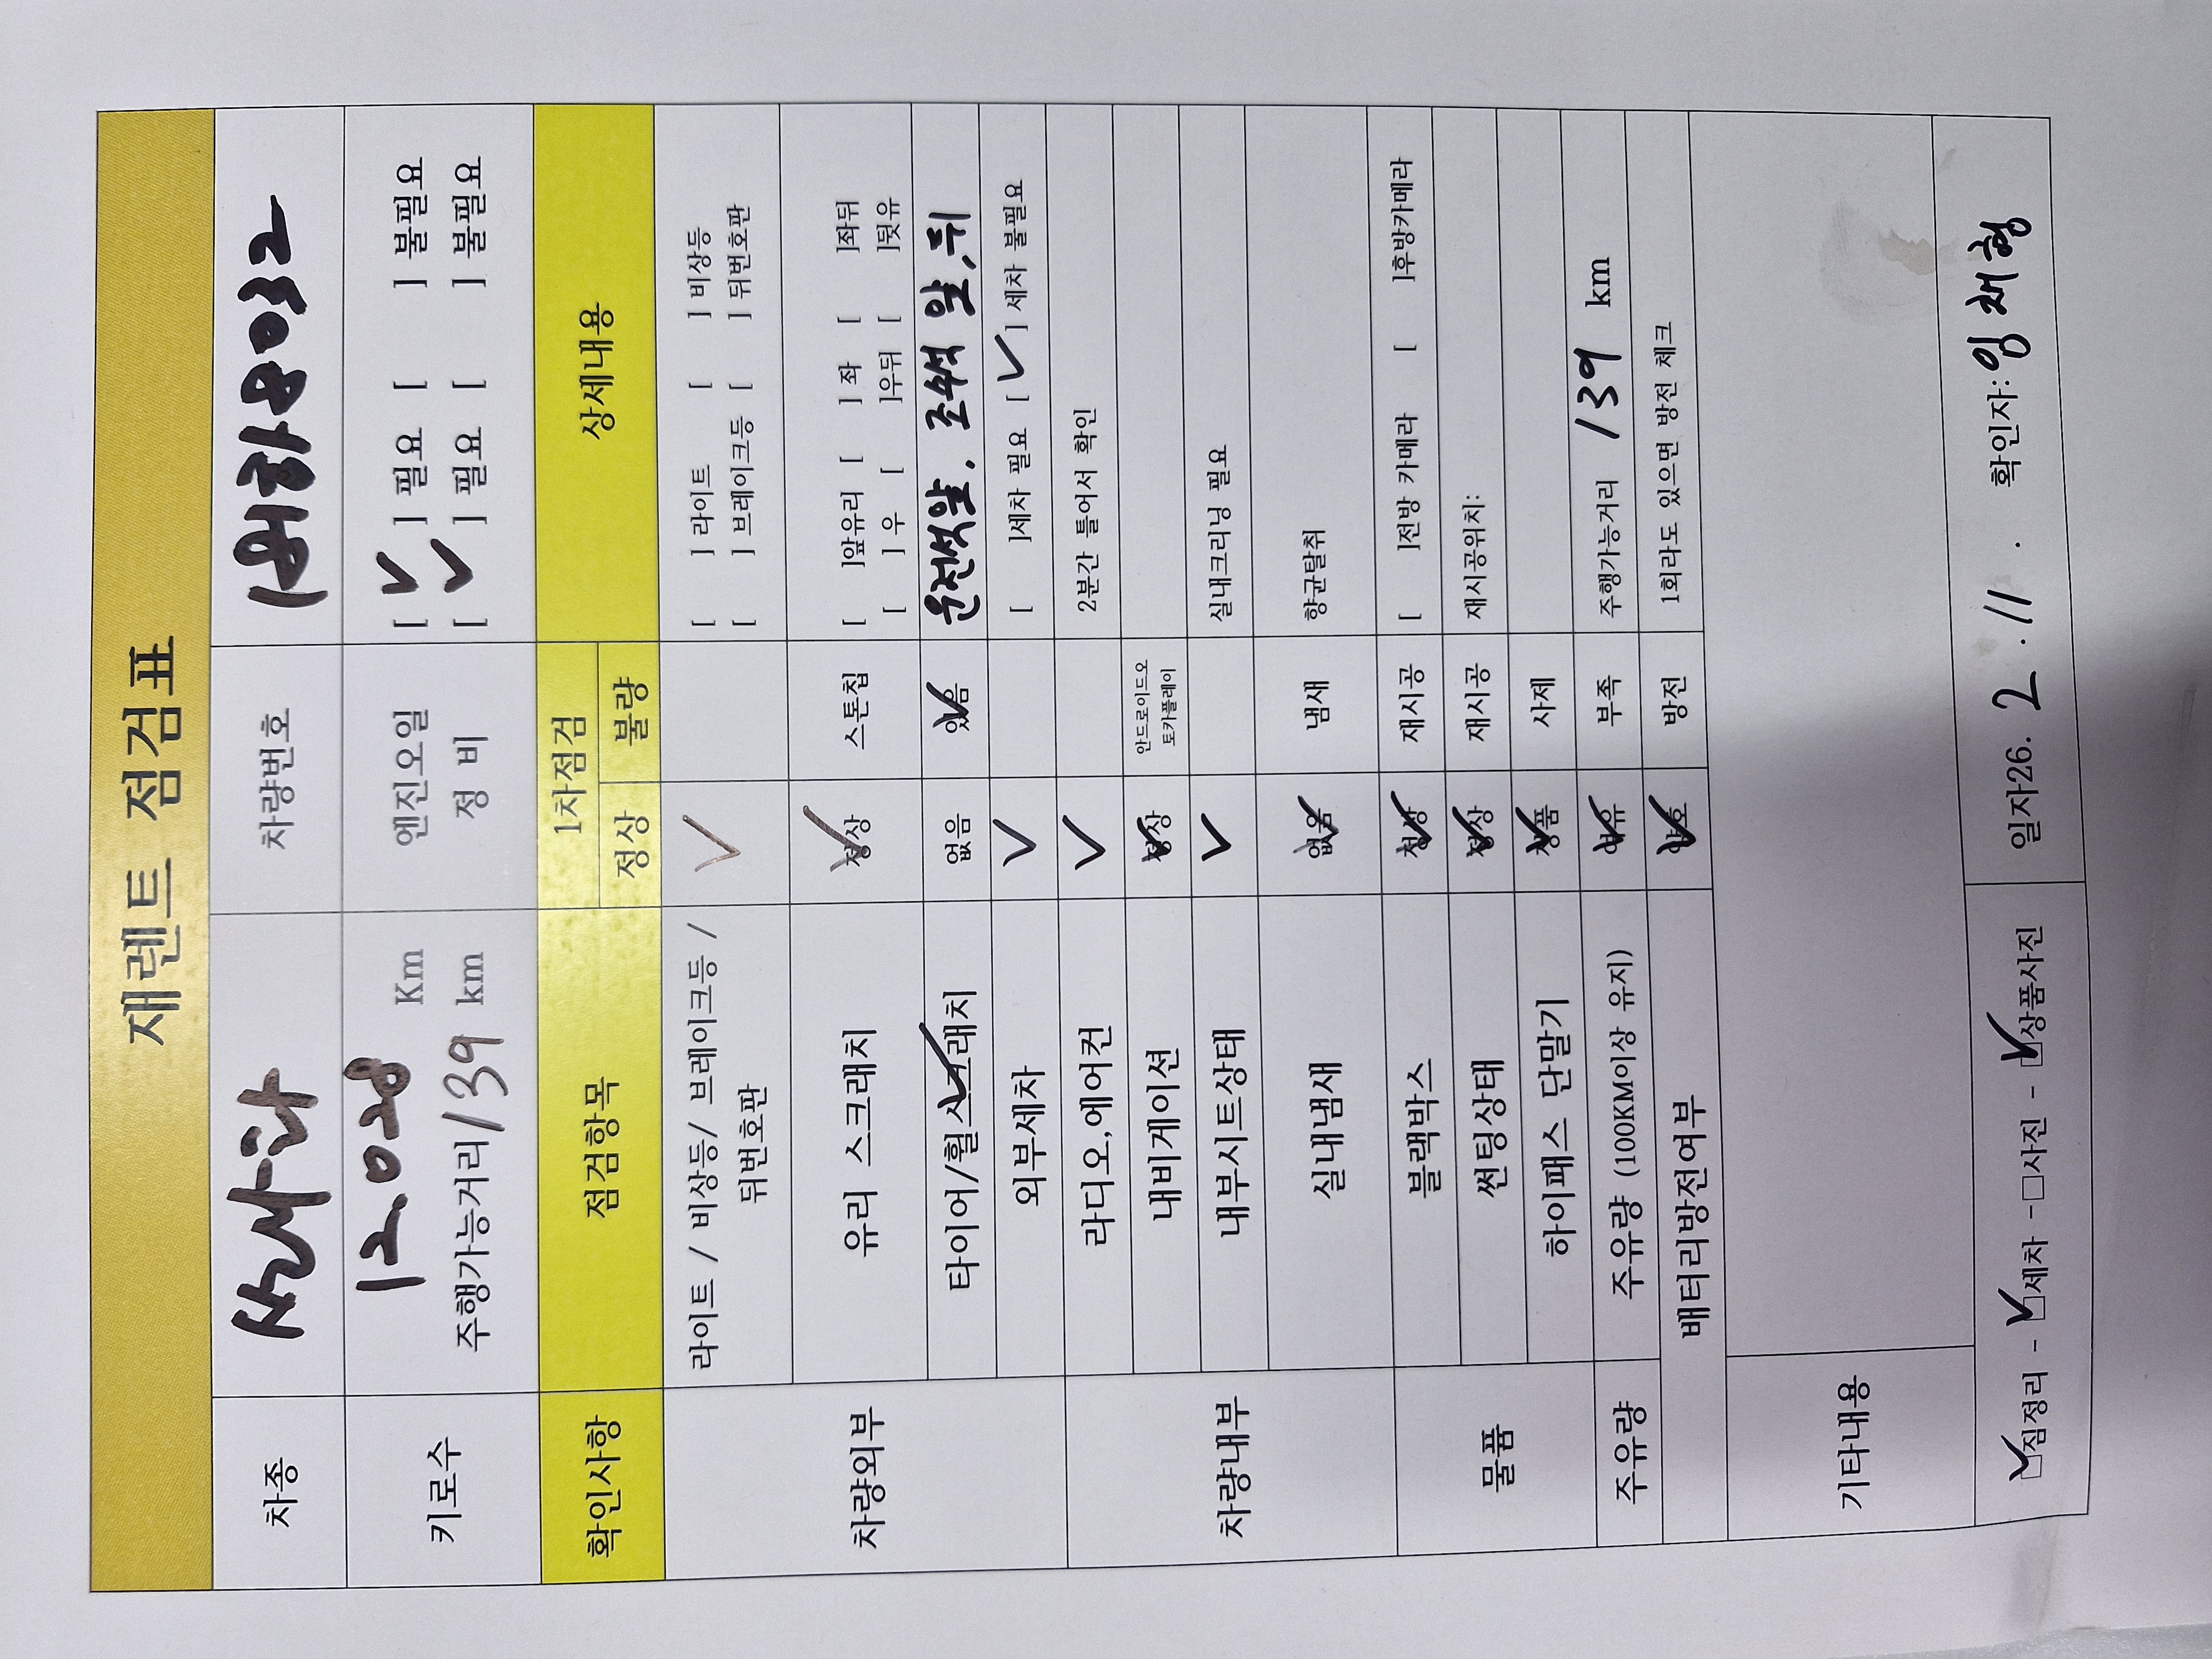 재렌트 점검표
차종 싼타 차량번호 188하8032
키로수 12.028 Km 엔진오일 [ ✓ ] 필요 [ ] 불필요
주행가능거리 139 km 정 비 [ ✓ ] 필요 [ ] 불필요
확인사항 점검항목 1차점검 상세내용
정상 불량
차량외부
라이트 / 비상등/ 브레이크등 / 뒤번호판 ✓ [ ] 라이트 [ ] 비상등
[ ] 브레이크등 [ ] 뒤번호판
유리 스크래치 정상 ✓ 스톤칩 [ ]앞유리 [ ] 좌 [ ]좌뒤
[ ] 우 [ ]우뒤 [ ]뒷유
타이어/휠스크래치 ✓ 없음 있음 ✓ 운전석앞. 조수석 앞.뒤
외부세차 ✓ [ ]세차 필요 [ ✓ ] 세차 불필요
차량내부
라디오,에어컨 ✓ 2분간 틀어서 확인
내비게이션 정상 ✓ 안드로이드오토카플레이
내부시트상태 ✓ 실내크리닝 필요
실내냄새 없음 ✓ 냄새 향균탈취
물품
블랙박스 정상 ✓ 재시공 [ ]전방 카메라 [ ]후방카메라
썬팅상태 정상 ✓ 재시공 재시공위치:
하이패스 단말기 정품 ✓ 사제
주유량 주유량 (100KM이상 유지) 여유 ✓ 부족 주행가능거리 139 km
배터리방전여부 양호 ✓ 방전 1회라도 있으면 방전 체크
기타내용
☑짐정리 - ☑세차 - □사진 - ☑상품사진 일자26. 2 . 11 . 확인자: 임채형